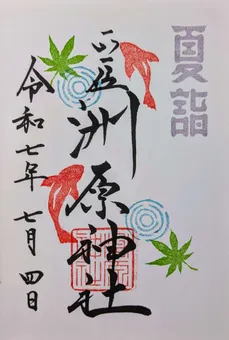 夏詣
洲原神社
令和七年七月四日